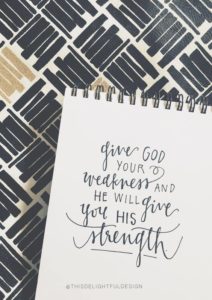 give GOD
YOUR
weakness AND
HE WILL give
you HIS
strength
@THISDELIGHTFULDESIGN